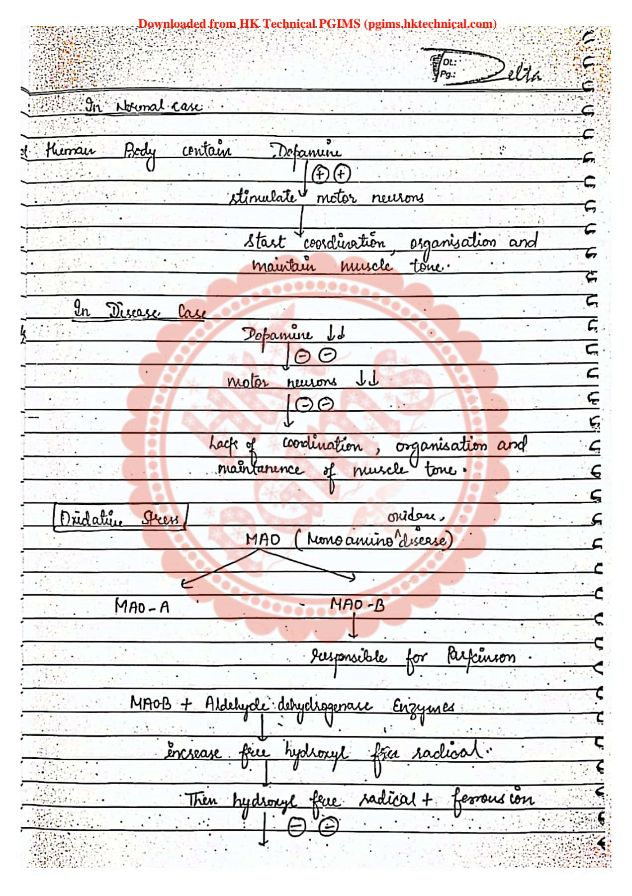 Downloaded from HK Technical PGIMS (pgims.hktechnical.com)
DL:
Pg.:
Delta
In Normal case
Human Body contain Dopamine
+ +
stimulate motor neurons
Start coordination, organisation and
maintain muscle tone.
In Disease Case
Dopamine ↓↓
- -
motor neurons ↓↓
- -
Lack of coordination, organisation and
maintanence of muscle tone.
HK
PGIMS
Oxidative Stress
oxidase
MAO (Monoamino ^ disease)
MAO-A MAO-B
responsible for Parkinson
MAOB + Aldehyde dehydrogenase Enzymes
increase free hydroxyl free radical
Then hydroxyl free radical + ferrous ion
- -